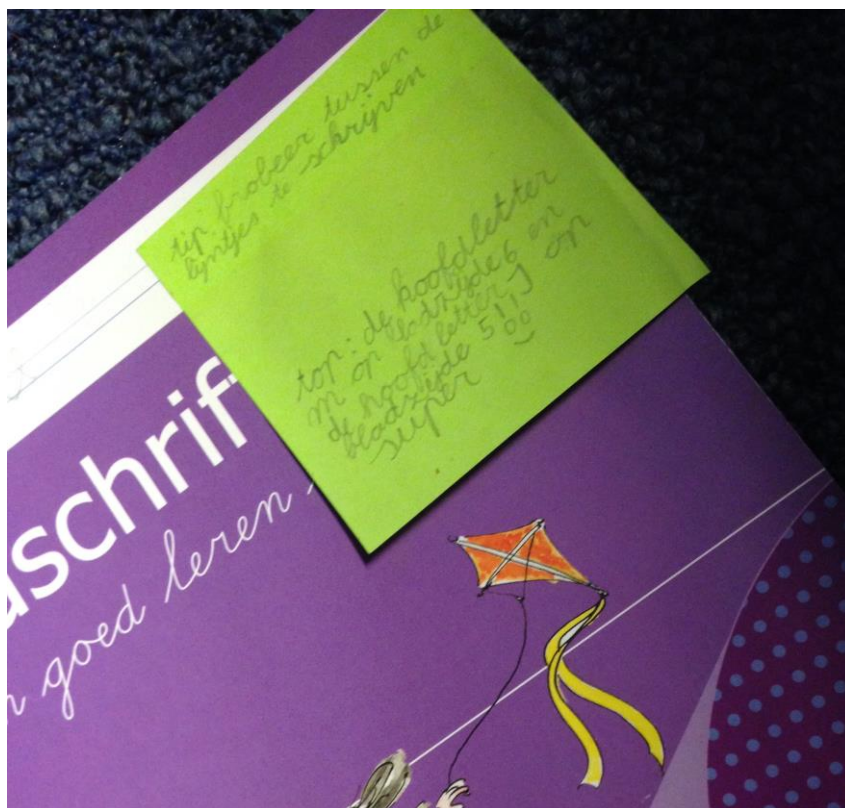 tip: probeer tussen de
lijntjes te schrijven
top: de hoofdletter
m op bladzijde 6 en
de hoofdletter J op
bladzijde 5!!
super
schrif
goed leren